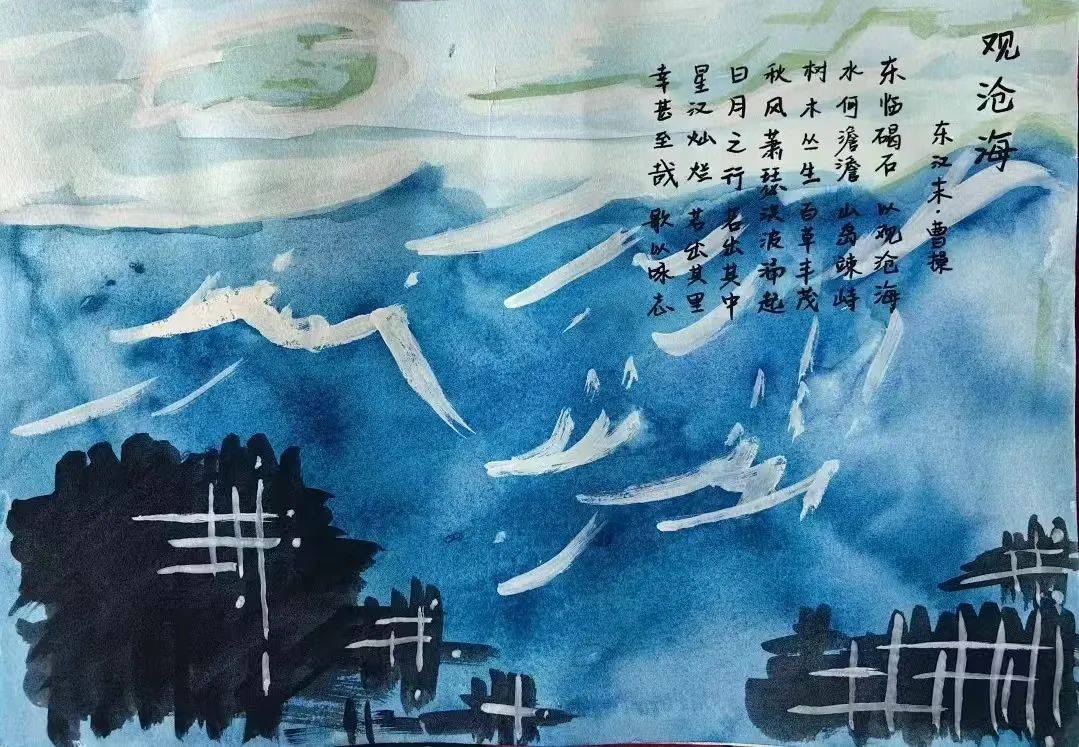 观沧海
东汉末·曹操
东临碣石 以观沧海
水何澹澹 山岛竦峙
树木丛生 百草丰茂
秋风萧瑟 洪波涌起
日月之行 若出其中
星汉灿烂 若出其里
幸甚至哉 歌以咏志